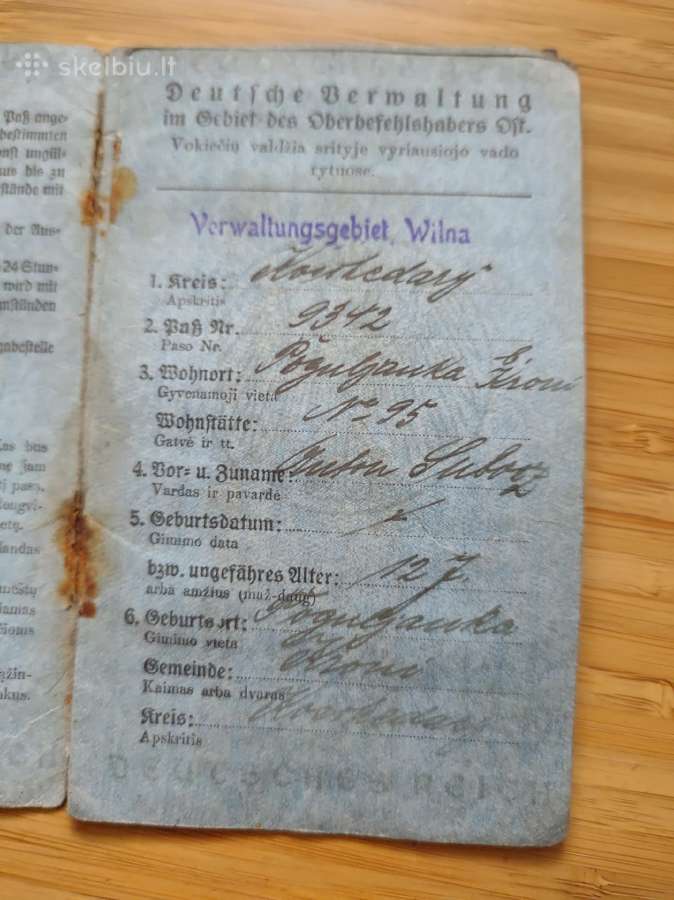 skelbiu.lt
Paß ange-
bestimmten
onst ungül-
aus bis zu
stände mit
der Aus-
24 Stun-
wird mit
mständen
gabestelle
kas bus
nę jam
tį pasą.
iandas
mėstų
iamas
žiomis
ąžin-
nkus.
Deutsche Verwaltung
im Gebiet des Oberbefehlshabers Ost.
Vokiečiu valdžia srityje vyriausiojo vado
rytuose.
Verwaltungsgebiet, Wilna
1. Kreis: Koschedary
Apskritis
2. Paß Nr. 9342
Paso Nr.
3. Wohnort: Poguljanka G. Kroni
Gyvenamoji vieta
Wohnstätte: No 95
Gatvė ir tt.
4. Vor- u. Zuname: Anton
Vardas ir pavardė
5. Geburtsdatum:
Gimimo data
bzw. ungefähres Alter: 12 J.
arba amžius (maž-daug)
6. Geburtsort: Poguljanka
Gimimo vieta
Gemeinde: Kroni
Kaimas arba dvaras
Kreis: Koschedary
Apskritis
Deutsches Reich